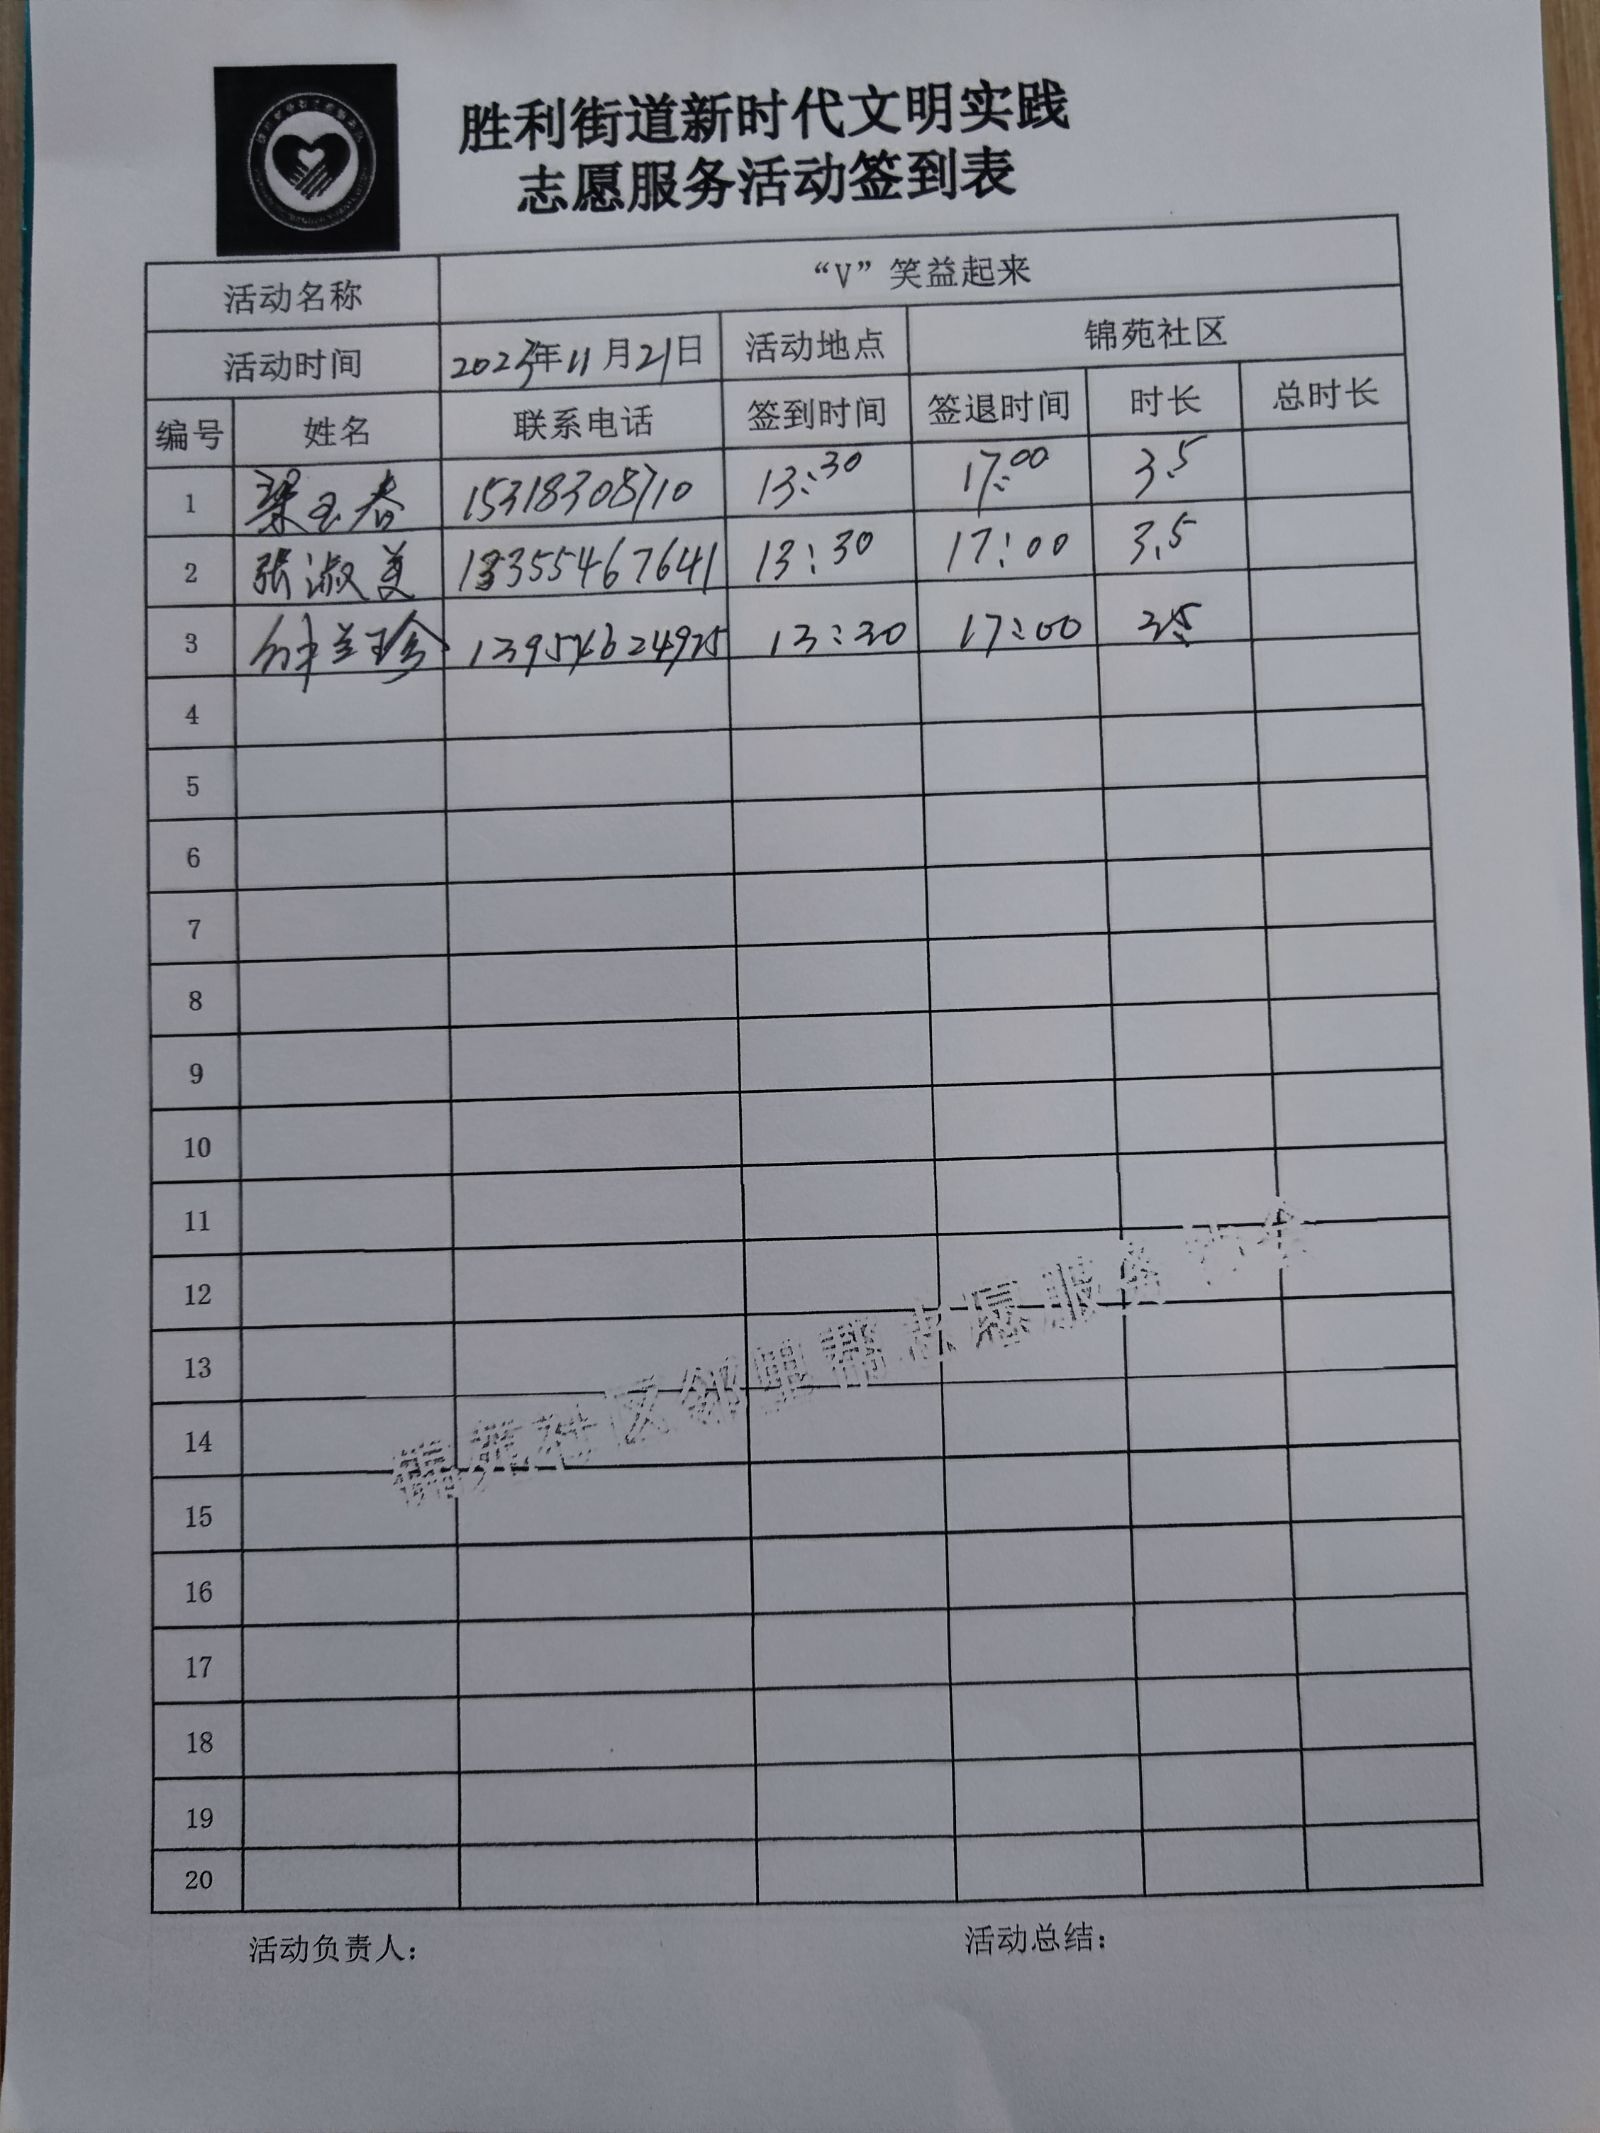 胜利街道新时代文明实践
志愿服务活动签到表
活动名称 “V”笑益起来
活动时间 2023年11月21日 活动地点 锦苑社区
编号 姓名 联系电话 签到时间 签退时间 时长 总时长
1 梁玉春 15318308710 13:30 17:00 3.5
2 张淑美 13355467641 13:30 17:00 3.5
3 钟兰珍 13954624925 13:30 17:00 3.5
4
5
6
7
8
9
10
11
12
13
14
15
16
17
18
19
20
锦苑社区邻里帮志愿服务协会
活动负责人： 活动总结：